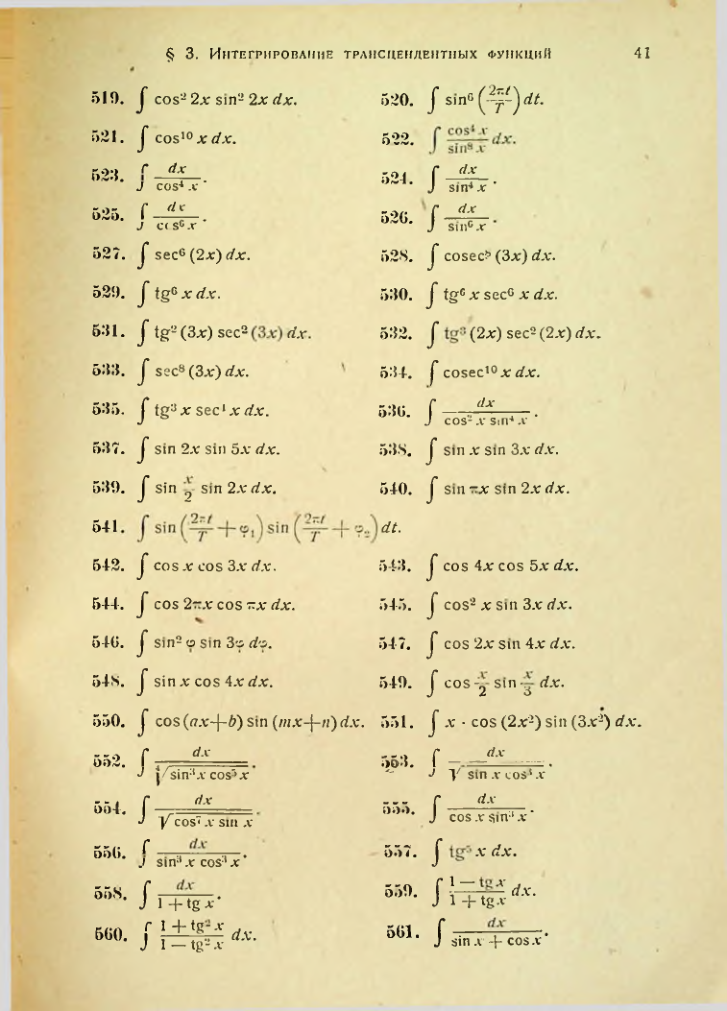 § 3. Интегрирование трансцендентных функций 41
519. ∫ cos² 2x sin² 2x dx. 520. ∫ sin⁶ (2πt/T) dt.
521. ∫ cos¹⁰ x dx. 522. ∫ cos⁴ x / sin⁸ x dx.
523. ∫ dx / cos⁴ x. 524. ∫ dx / sin⁴ x.
525. ∫ dx / cos⁶ x. 526. ∫ dx / sin⁶ x.
527. ∫ sec⁶ (2x) dx. 528. ∫ cosec⁸ (3x) dx.
529. ∫ tg⁶ x dx. 530. ∫ tg⁶ x sec⁶ x dx.
531. ∫ tg² (3x) sec² (3x) dx. 532. ∫ tg³ (2x) sec² (2x) dx.
533. ∫ sec⁸ (3x) dx. 534. ∫ cosec¹⁰ x dx.
535. ∫ tg³ x sec⁴ x dx. 536. ∫ dx / cos² x sin⁴ x.
537. ∫ sin 2x sin 5x dx. 538. ∫ sin x sin 3x dx.
539. ∫ sin x/2 sin 2x dx. 540. ∫ sin πx sin 2x dx.
541. ∫ sin (2πt/T + φ₁) sin (2πt/T + φ₂) dt.
542. ∫ cos x cos 3x dx. 543. ∫ cos 4x cos 5x dx.
544. ∫ cos 2πx cos πx dx. 545. ∫ cos² x sin 3x dx.
546. ∫ sin² φ sin 3φ dφ. 547. ∫ cos 2x sin 4x dx.
548. ∫ sin x cos 4x dx. 549. ∫ cos x/2 sin x/3 dx.
550. ∫ cos (ax+b) sin (mx+n) dx. 551. ∫ x · cos (2x²) sin (3x²) dx.
552. ∫ dx / ∜(sin³ x cos⁵ x). 553. ∫ dx / √(sin x cos³ x).
554. ∫ dx / √(cos⁷ x sin x). 555. ∫ dx / cos x sin³ x.
556. ∫ dx / sin³ x cos³ x. 557. ∫ tg⁵ x dx.
558. ∫ dx / 1 + tg x. 559. ∫ 1 — tg x / 1 + tg x dx.
560. ∫ 1 + tg² x / 1 — tg² x dx. 561. ∫ dx / sin x + cos x.